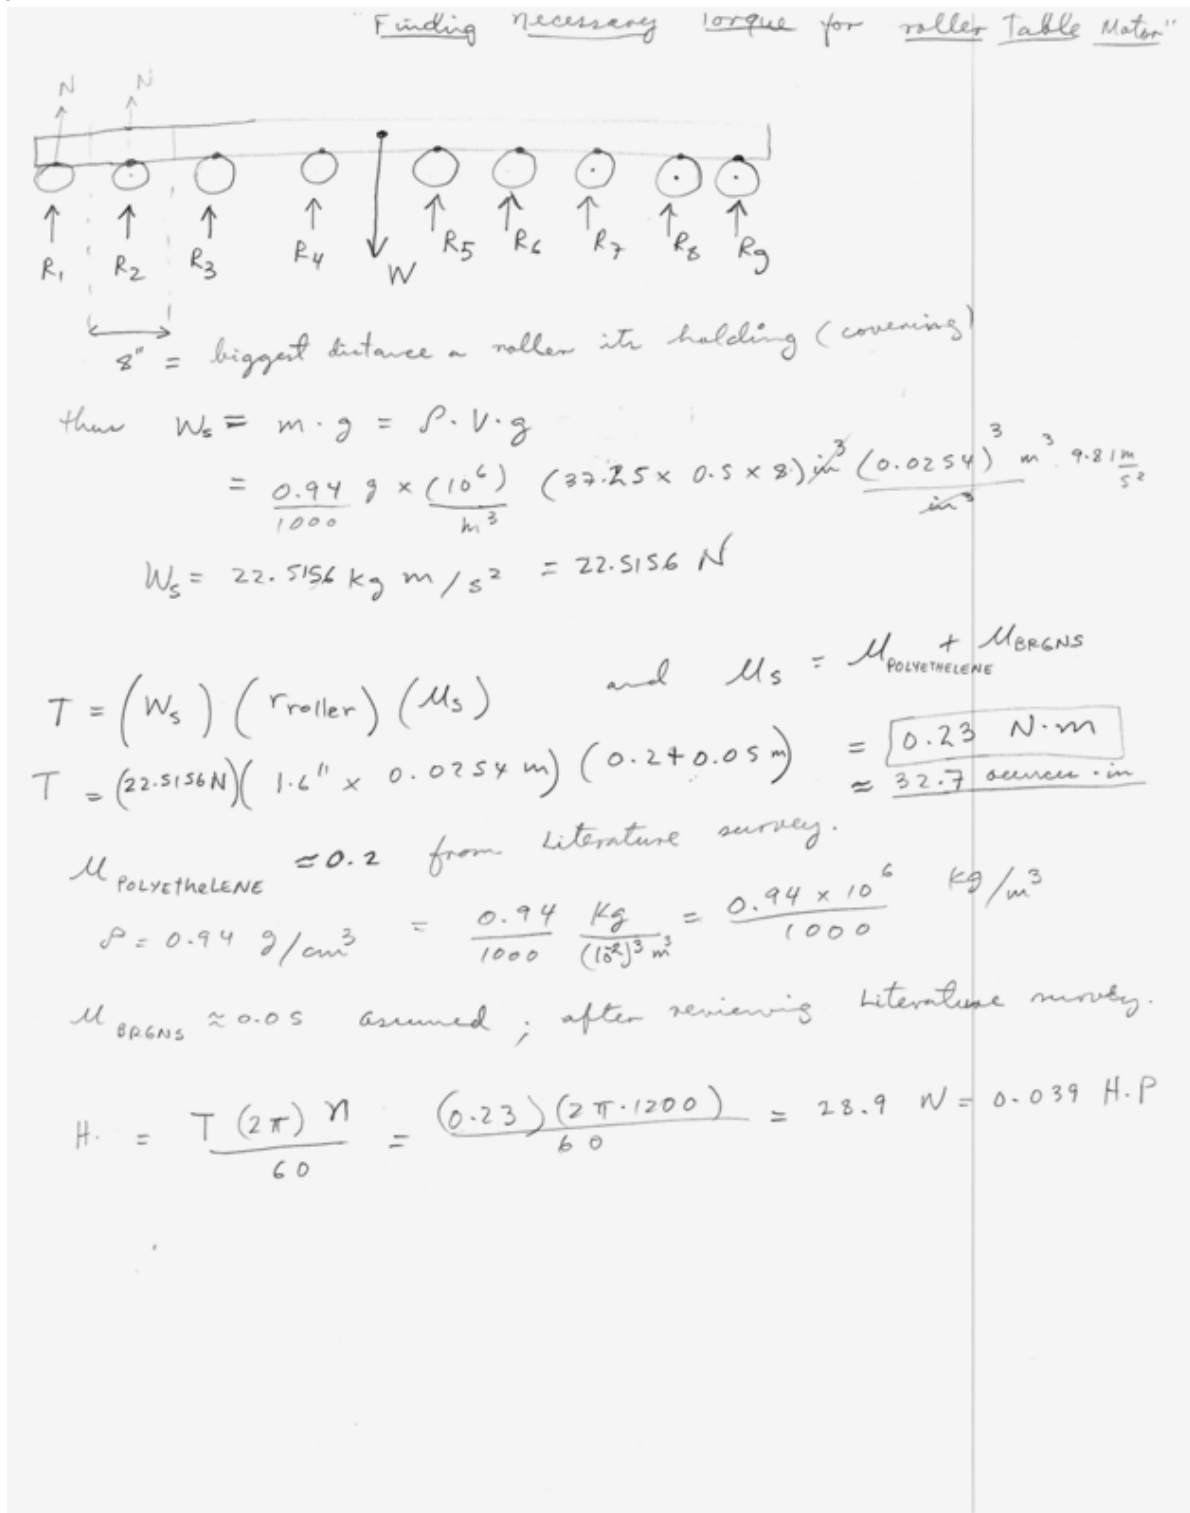 "Finding necessary Torque for roller Table Motor"
N N
R1 R2 R3 R4 W R5 R6 R7 R8 R9
8" = biggest distance a roller its holding (covering)
thus Ws = m · g = ρ · V · g
= 0.94/1000 g × (10^6)/m^3 (37.25 × 0.5 × 8) in^3 (0.0254)^3 m^3/in^3 · 9.81 m/s^2
Ws = 22.5156 kg m/s^2 = 22.5156 N
T = (Ws) (r roller) (μs) and μs = μ POLYETHELENE + μ BRGNS
T = (22.5156N)(1.6" × 0.0254 m) (0.2+0.05 m) = 0.23 N·m
≈ 32.7 ounces · in
μ POLYEtheLENE ≈ 0.2 from Literature survey.
ρ = 0.94 g/cm^3 = 0.94/1000 Kg/(10^-2)^3 m^3 = 0.94 × 10^6/1000 kg/m^3
μ BRGNS ≈ 0.05 assumed ; after reviewing Literature survey.
H. = T (2π) n/60 = (0.23)(2π·1200)/60 = 28.9 W = 0.039 H.P